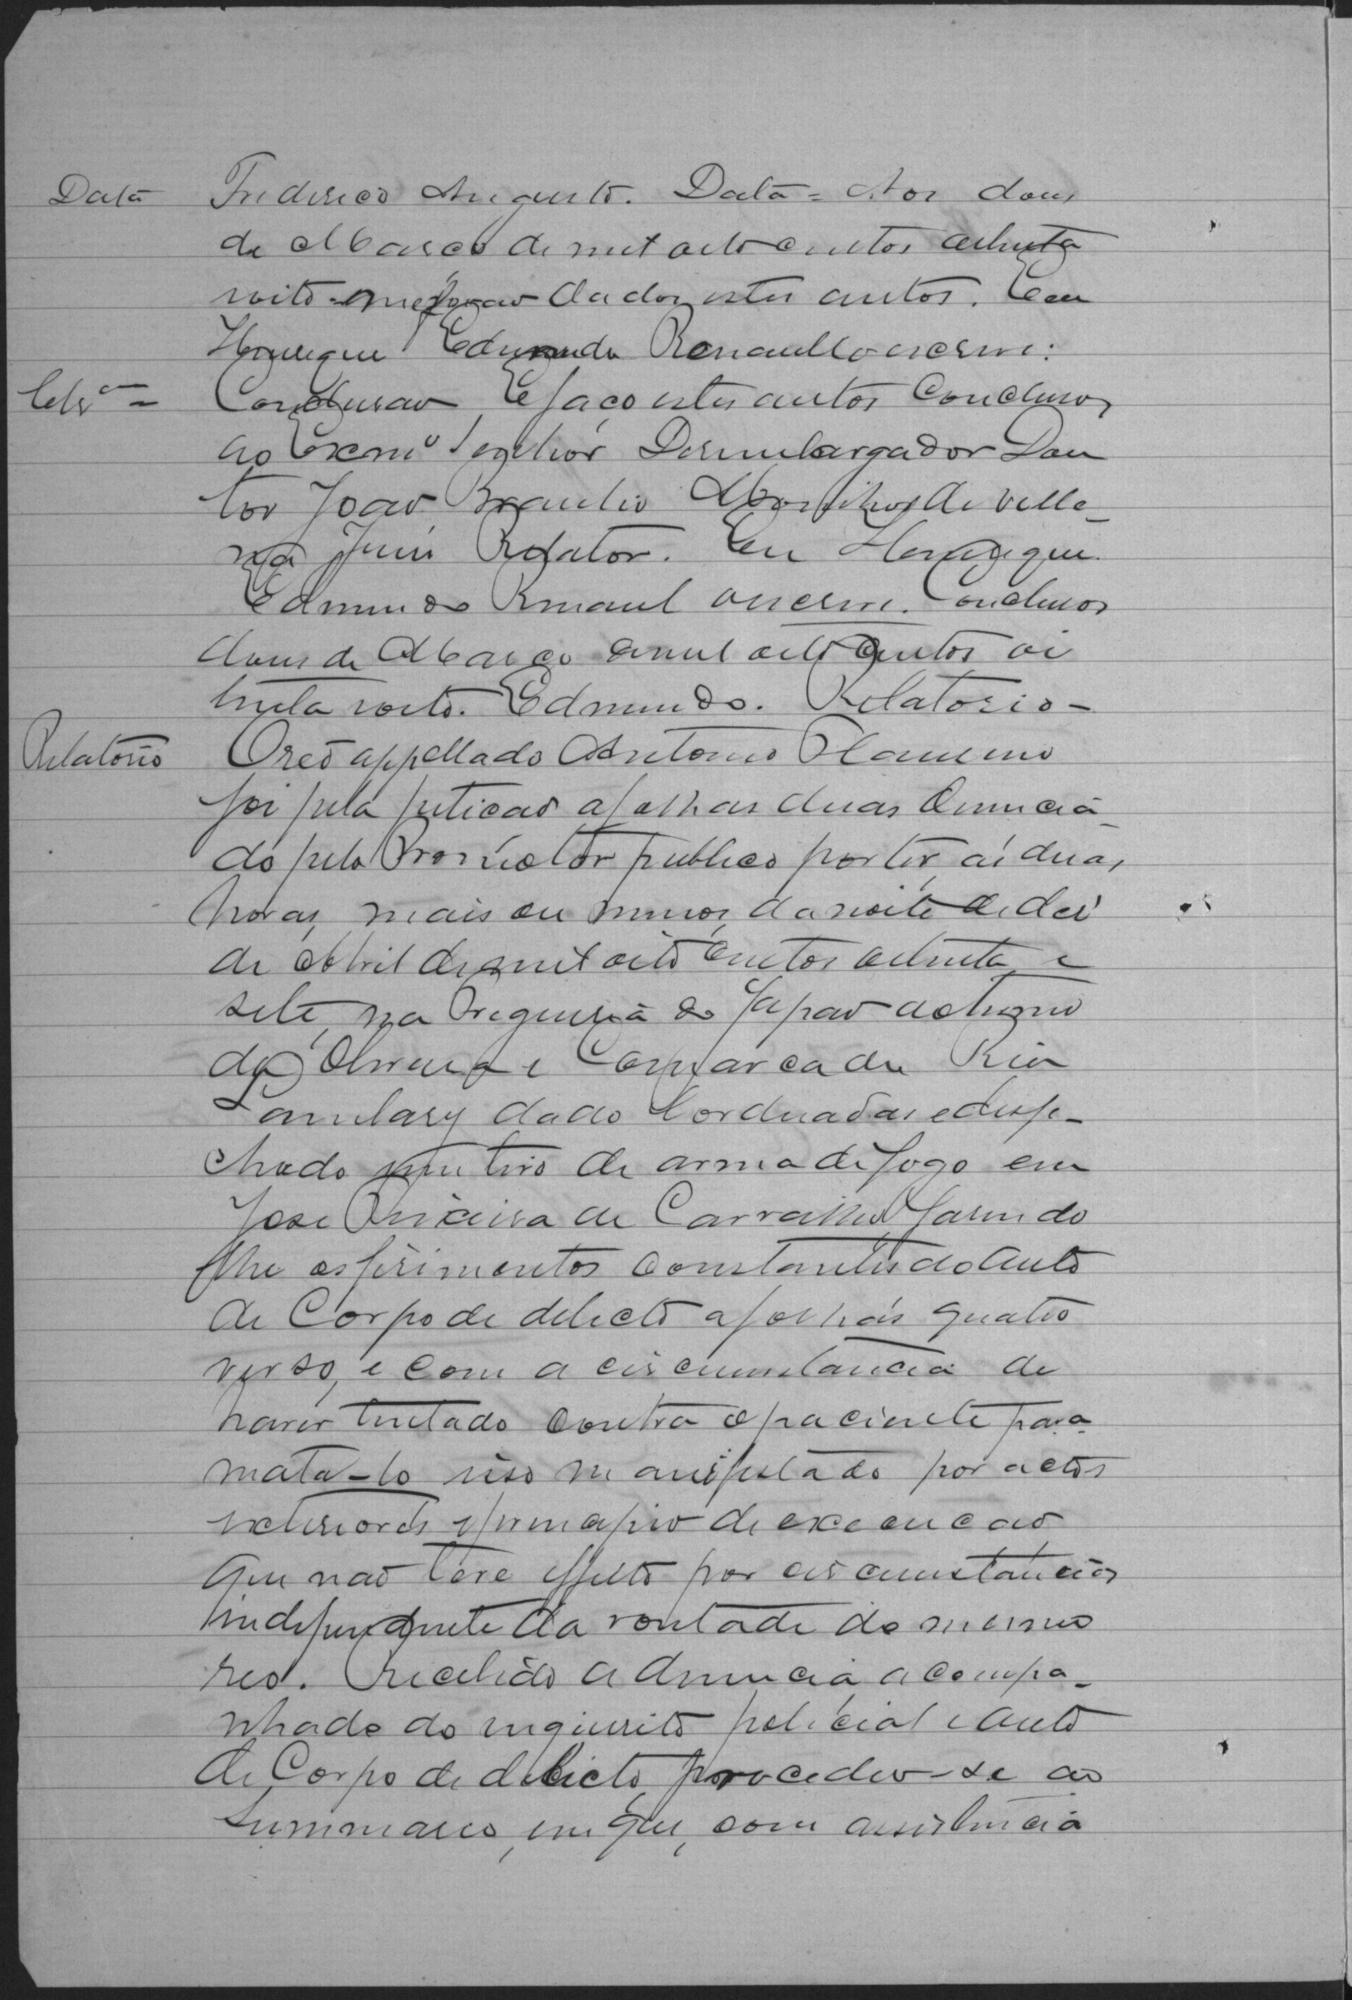 Data Frederico Augusto. Data = Aos dous
de Março de mil oito centos oitenta
oito me forão dados estes autos. Eu
Henrique Edmundo Renault o escrevi:
Clsão = Conclusão E faço estes autos Conclusos
ao Exmo Senhor Desembargador Dou
tor João Braulio Moinhos de Vilhe-
na Juiz Relator. Eu Henrique
Edmundo Renault o escrevi. Conclusos
dous de Março de mil oito centos oi
tenta e oito. Edmundo. Relatorio -
Relatorio O reo appellado Antonio
foi pela petição a folhas duas denuncia
do pelo Promotor publico por ter, ás duas
horas, mais ou menos, da noite de dez
de Abril de mil oito centos oitenta e
sete, na freguesia do Japão do termo
da Oliveira e Comarca do Rio
Lambary dado bordoadas e despe-
chado um tiro de arma de fogo em
José de Carvalho fasendo
lhe os ferimentos constantes do auto
de Corpo de delicto a folhas quatro
verso, e com a circumstancia de
haver tentado contra o paciente para
mata-lo isso manifestado por actos
exteriores e principio de execução
que não teve effeito por circumstancias
independente da vontade do mesmo
reo. Recebido a denuncia acompa-
nhado do inquerito policial e auto
de Corpo de delicto, procedeo-se ao
summario, em que, com assistencia